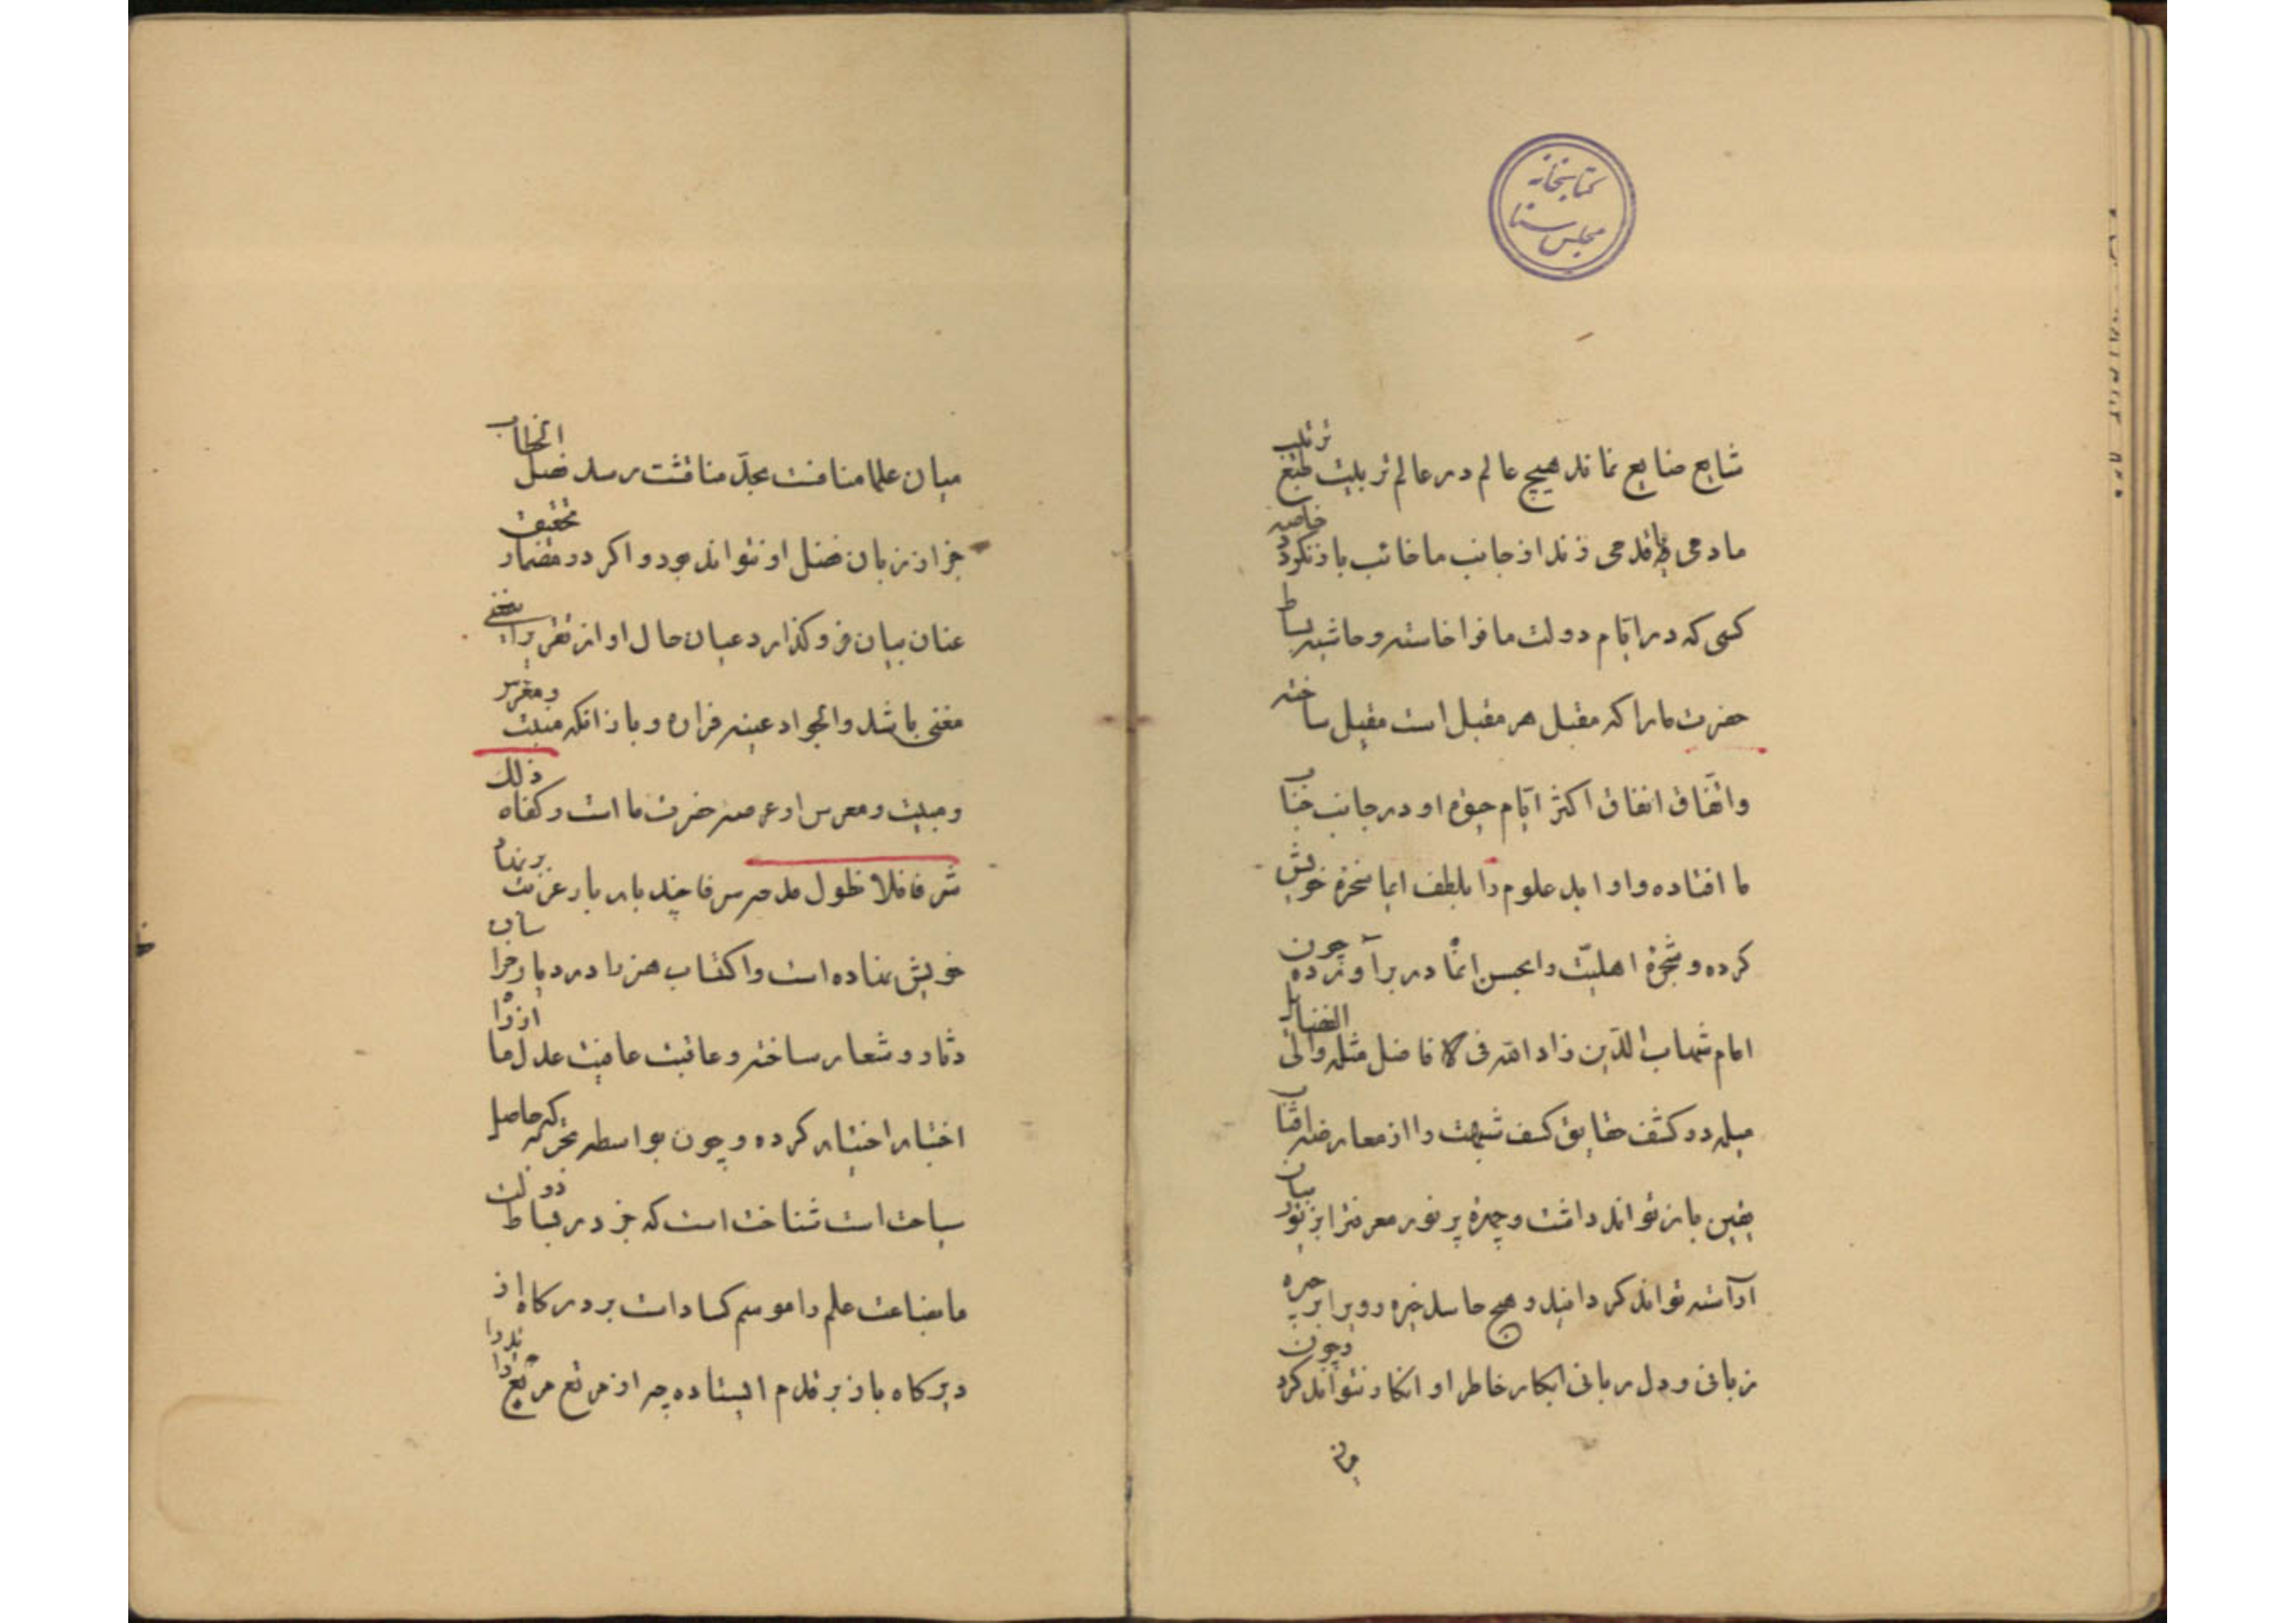 کتابخانه
مجلس سنا
شایع ضایع نماند هیچ عالم در عالم تربیت طبع ترتیب
ما دمی قدمی نزند از جانب ما خائب باز نگردد خاصه
کسی که در ایام دولت ما فوا خاسته و حاشیه بساط
حضرت ما را که مقبل هر مقبل است مقبل ساخته
واتفاق اتفاق اکثر ایام حیوة او در جانب جناب
ما افتاده و اوابد علوم را بلطف ایما سخره خویش
کرده و شجرۀ اهلیت را بحسن انما در بر آورده چون
امام شهاب الدین زاد الله فی الافاضل مثله والی الفضایل
میله در کشف حقایق کسف شبهت را از معارضه افتاب
یقین باز تواند داشت و چهرۀ پر نور معرفترا بزیور بیان
آراسته تواند کردانید و هیچ حاسد خیره روی برابر چیره
زبانی و دل ربانی ابکار خاطر او انکار نتواند کرد و چون
میان
میان علما منافست بحد مناقشت رسد فصل الخطاب
جز از زبان فضل او نتواند بود و اگر در مضمار تحقیق
عنان بیان فرو گذارد عیان حال او از تقریر
مغنی باشد والجواد عینه فراره و باز انکه منبت و مغرس
و مبیت و معرس او عرصه حضرت ما است و کفاه ذلک
شرفا فلا طول مدحه سرفا چند بار بار عزیمت بر نهاد
خویش نهاده است و اکتساب هنر را در دیار
دثار و شعار ساخته و عاقبت عافیت عدل ما
اختبار اختیار کرده و چون بواسطه تجربه که حاصل
سیاحت است شناخت است که جز در بساط دولت
ما بضاعت علم را موسم کساد است بر درگاه از
دیرگاه باز بر قدم ایستاده چه از مرتع مربع